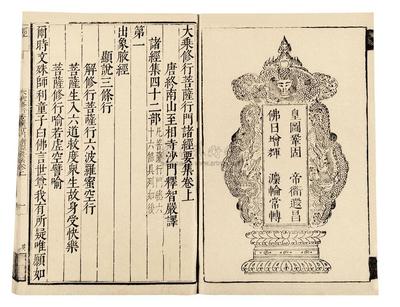 皇圖鞏固 帝衜遐昌
佛日增輝 灋輪常轉
大乘修行菩薩行門諸經要集卷上
唐終南山至相寺沙門釋智嚴譯
諸經集四十二部 凡菩薩行門總六
十六條具列如後
第一
出象腋經
顯說三條行
解修行菩薩行六波羅蜜空行
菩薩生入六道救度衆生故身受快樂
菩薩修行喻若虛空譬喻
爾時文殊師利童子白佛言世尊我有所疑唯願如